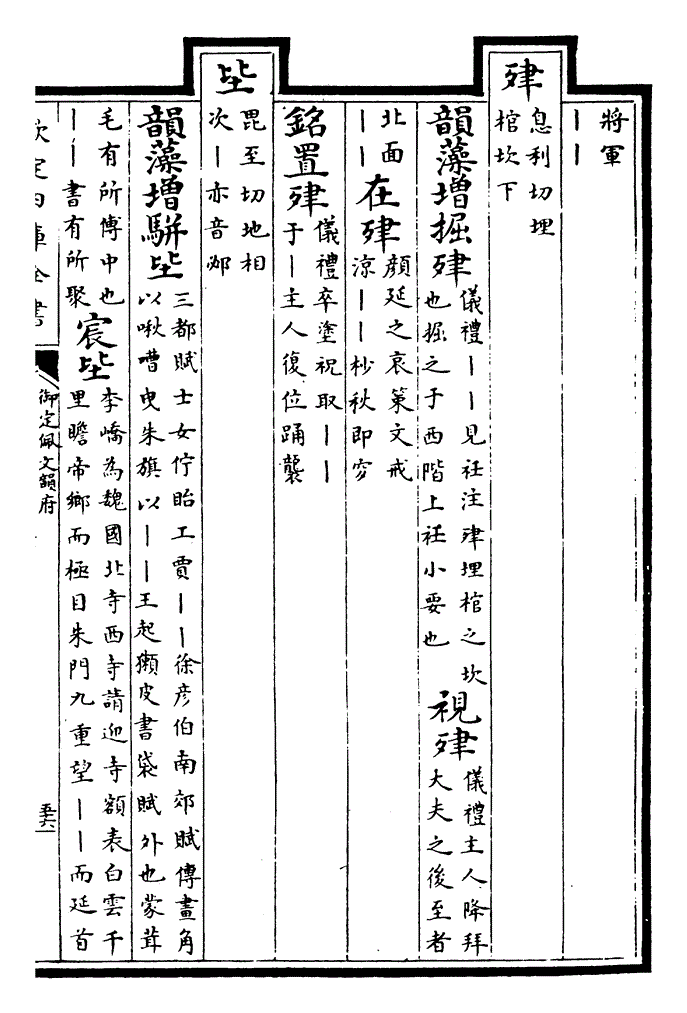 將軍
丨丨
肂
息利切埋
棺坎下
韻藻增掘肂
儀禮丨丨見衽注肂埋棺之坎
也掘之于西階上衽小要也
視肂
儀禮主人降拜
大夫之後至者
北面
丨丨
在肂
顔延之哀策文戒
涼丨丨杪秋即穸
銘置肂
儀禮卒塗祝取丨丨
于丨主人復位踊襲
坒
毘至切地相
次丨亦音邲
韻藻增駢坒
三都賦士女佇眙工賈丨丨徐彦伯南郊賦傳畫角
以啾嘈曳朱旗以丨丨王起獺皮書袋賦外也蒙茸
毛有所傅中也
丨丨書有所聚
宸坒
李嶠為魏國北寺西寺請迎寺額表白雲千
里瞻帝鄉而極目朱門九重望丨丨而延首
欽定四庫全書
御定佩文韻府